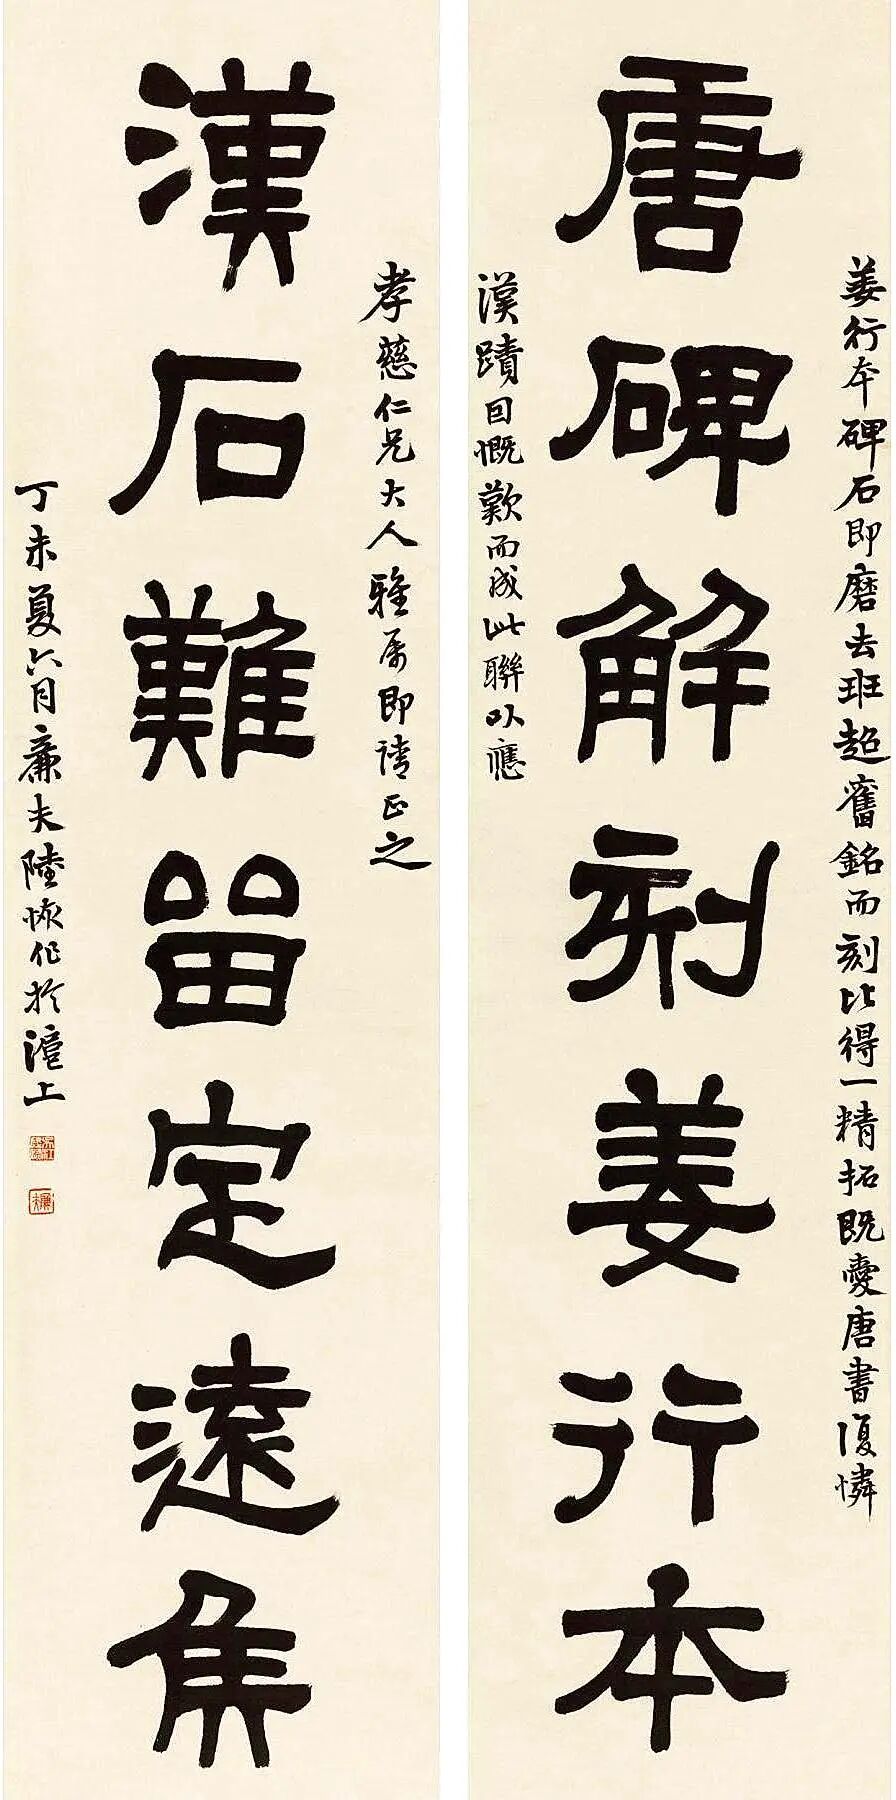 姜行本碑石即磨去班超舊銘而刻比得一精拓既愛唐書復憐
唐碑解刻姜行本
漢蹟因慨歎而成此聯以應
孝慈仁兄大人雅屬即請正之
漢石難留定遠侯
丁未夏六月廉夫陸恢作於滬上
廉夫